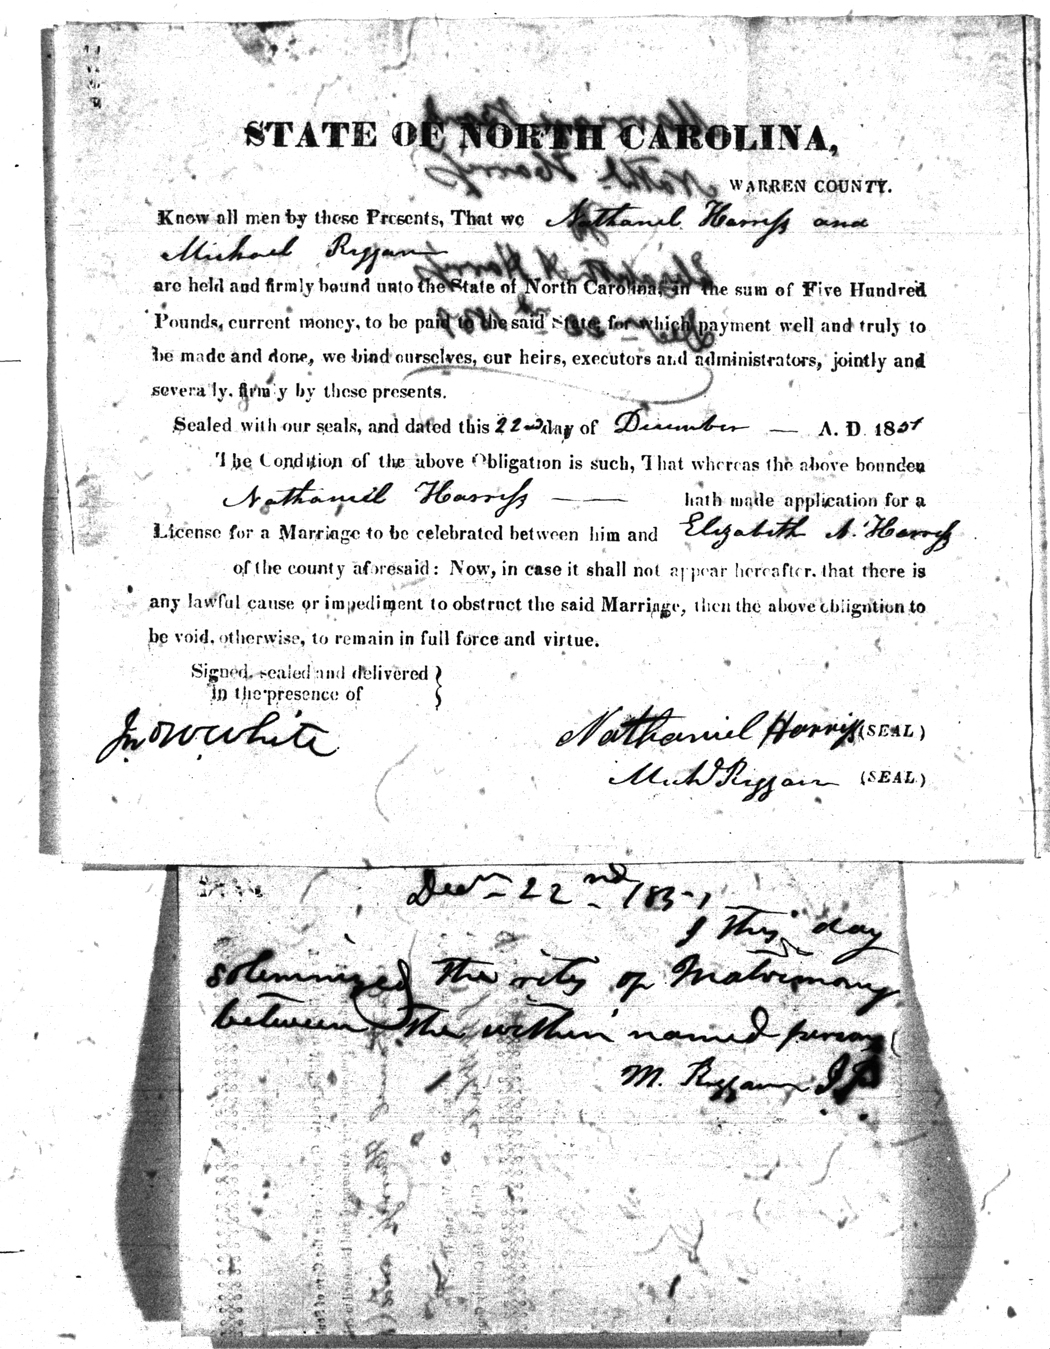 STATE OF NORTH CAROLINA,
WARREN COUNTY.
Know all men by these Presents, That we Nathaniel Harriss and
Michael Riggan
are held and firmly bound unto the State of North Carolina, in the sum of Five Hundred
Pounds, current money, to be paid to the said State, for which payment well and truly to
be made and done, we bind ourselves, our heirs, executors and administrators, jointly and
severally, firmly by these presents.
Sealed with our seals, and dated this 22nd day of December — A. D. 1851
The Condition of the above Obligation is such, That whereas the above bounden
Nathaniel Harriss — — hath made application for a
License for a Marriage to be celebrated between him and Elizabeth A. Harriss
of the county aforesaid: Now, in case it shall not appear hereafter, that there is
any lawful cause or impediment to obstruct the said Marriage, then the above obligation to
be void, otherwise, to remain in full force and virtue.
Signed, sealed and delivered }
in the presence of
Jno W White
Nathaniel Harriss (SEAL)
Michl Riggan (SEAL)
Decm - 22nd - 1851
I this day
solemnized the rites of Matrimony
between the within named persons
M. Riggan JP